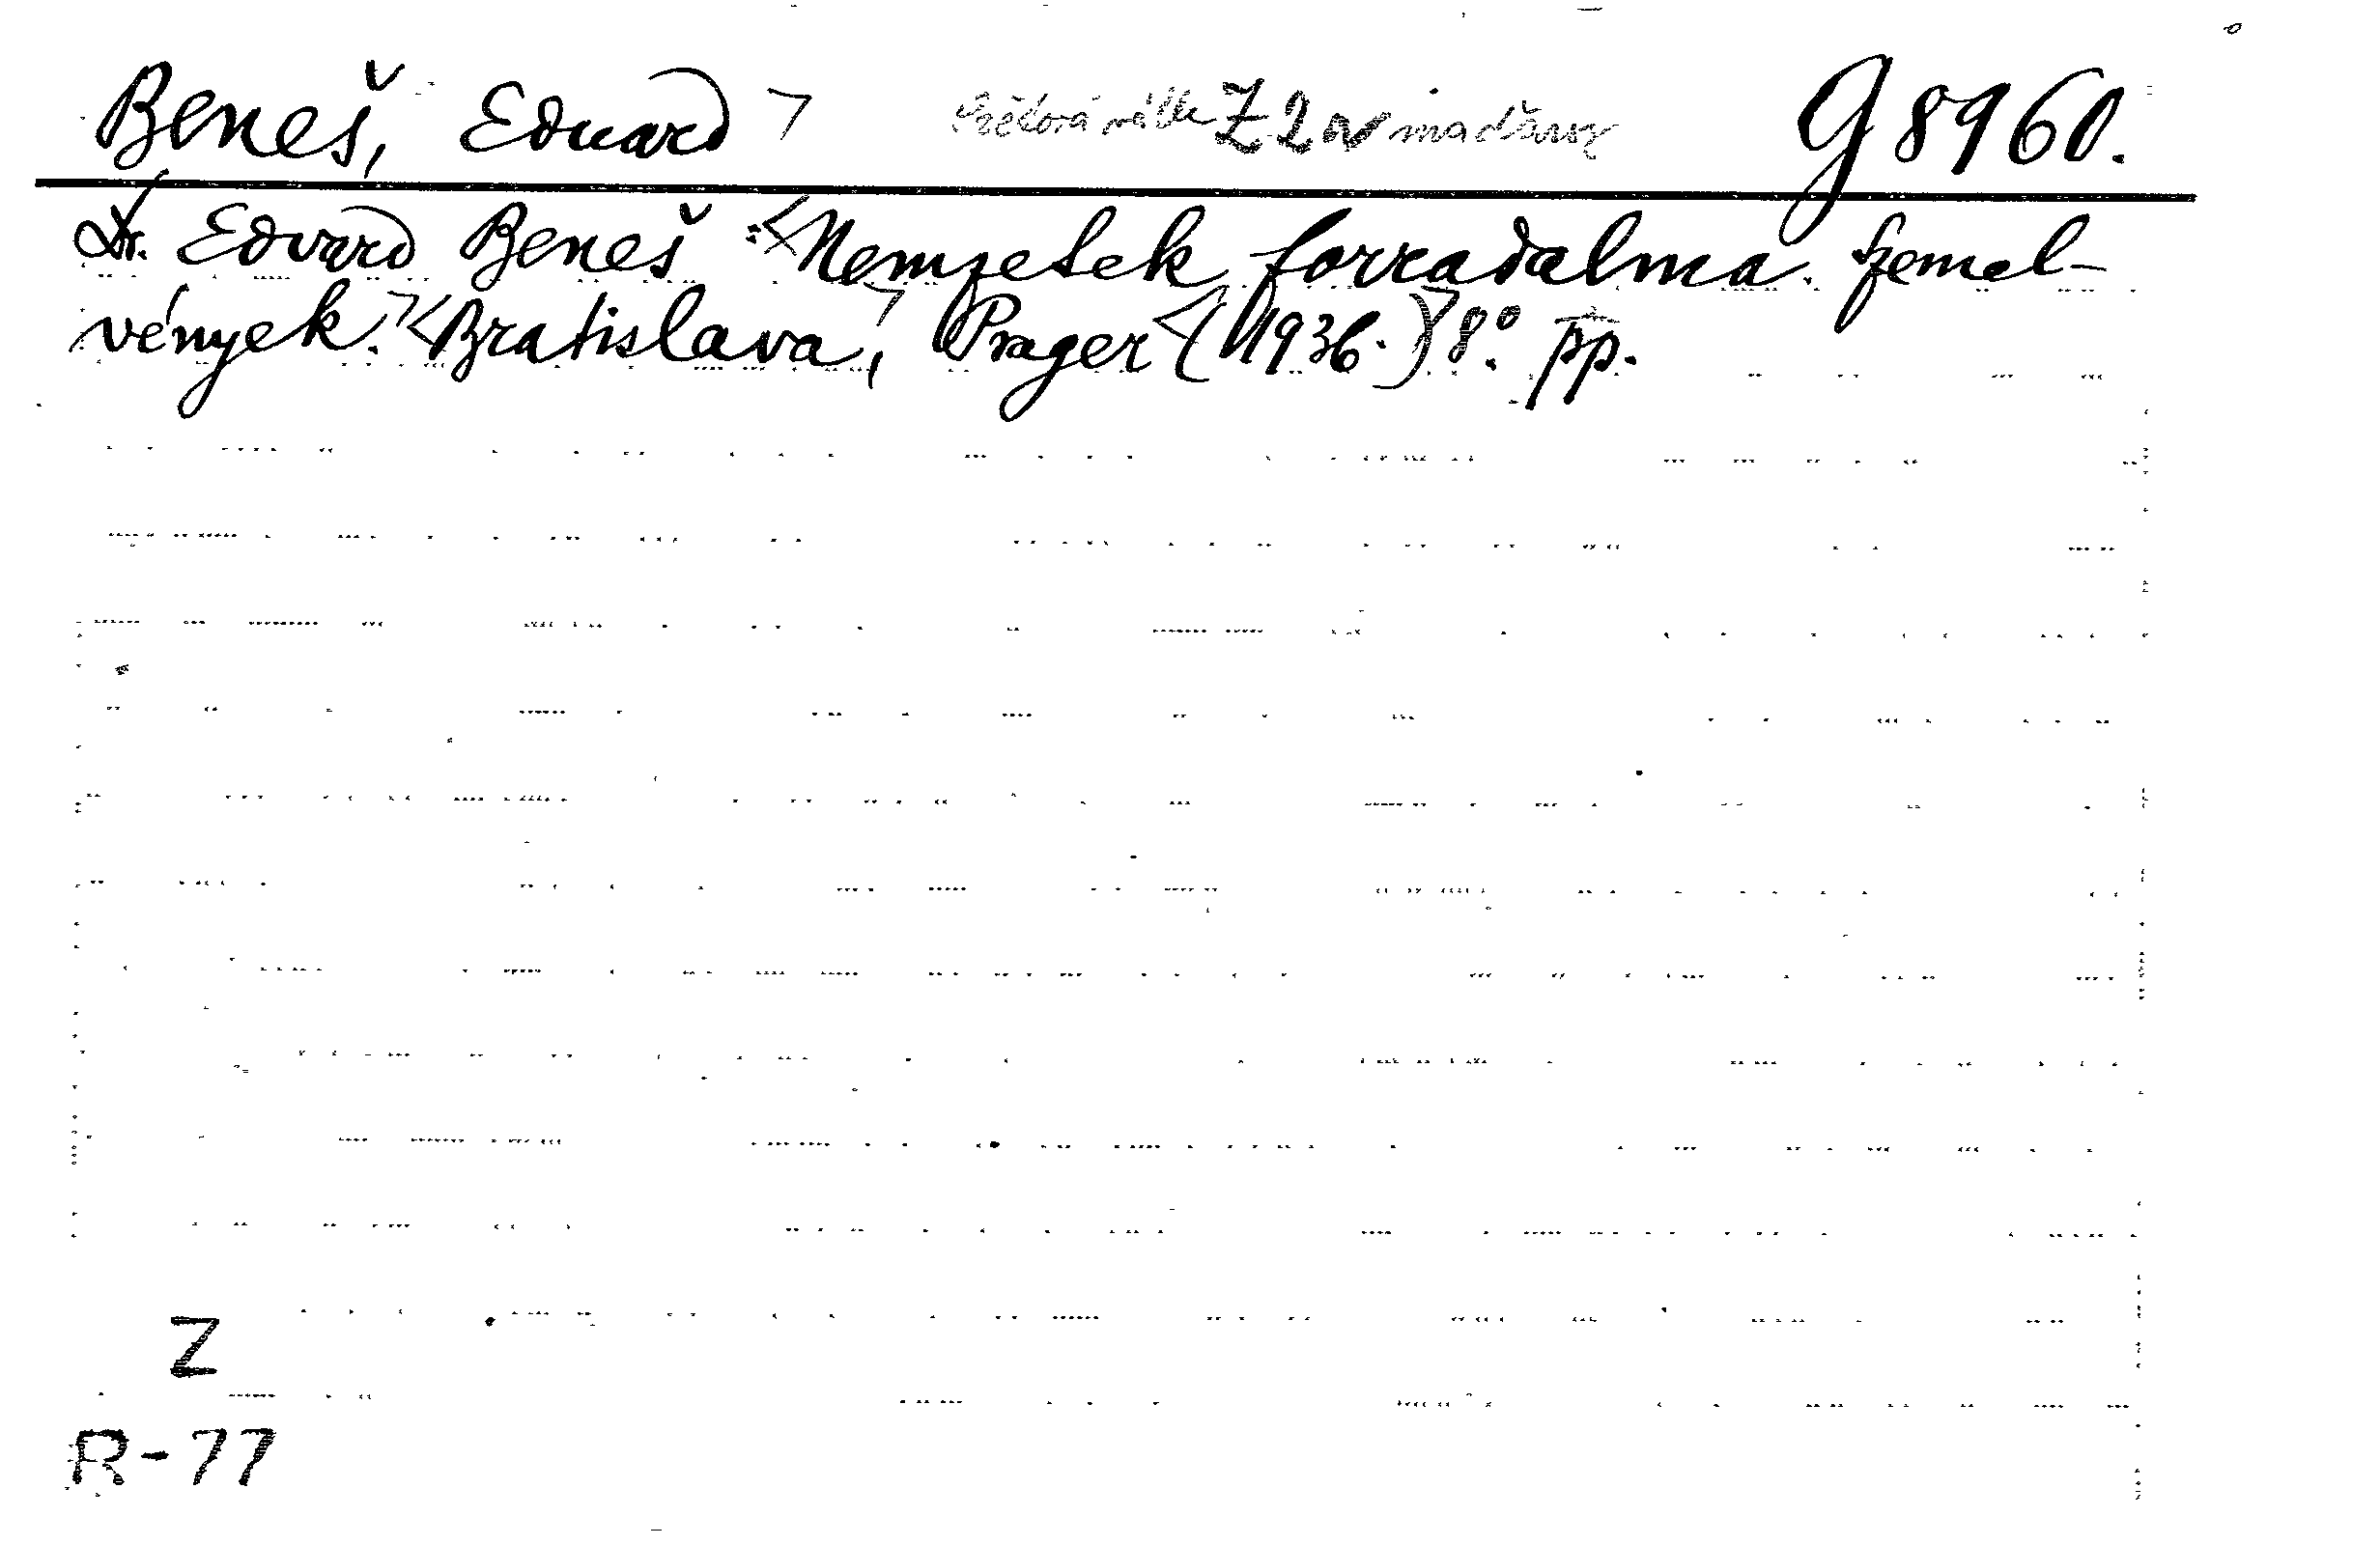 Beneš, Eduard > Světová válka Z 2 av maďarsky G 8960.
Dr. Edvard Beneš: <Nemzetek forradalma. Szemel-
vények.> <Bratislava,> Prager <(1936.)> 8°. pp.
Z
R-77